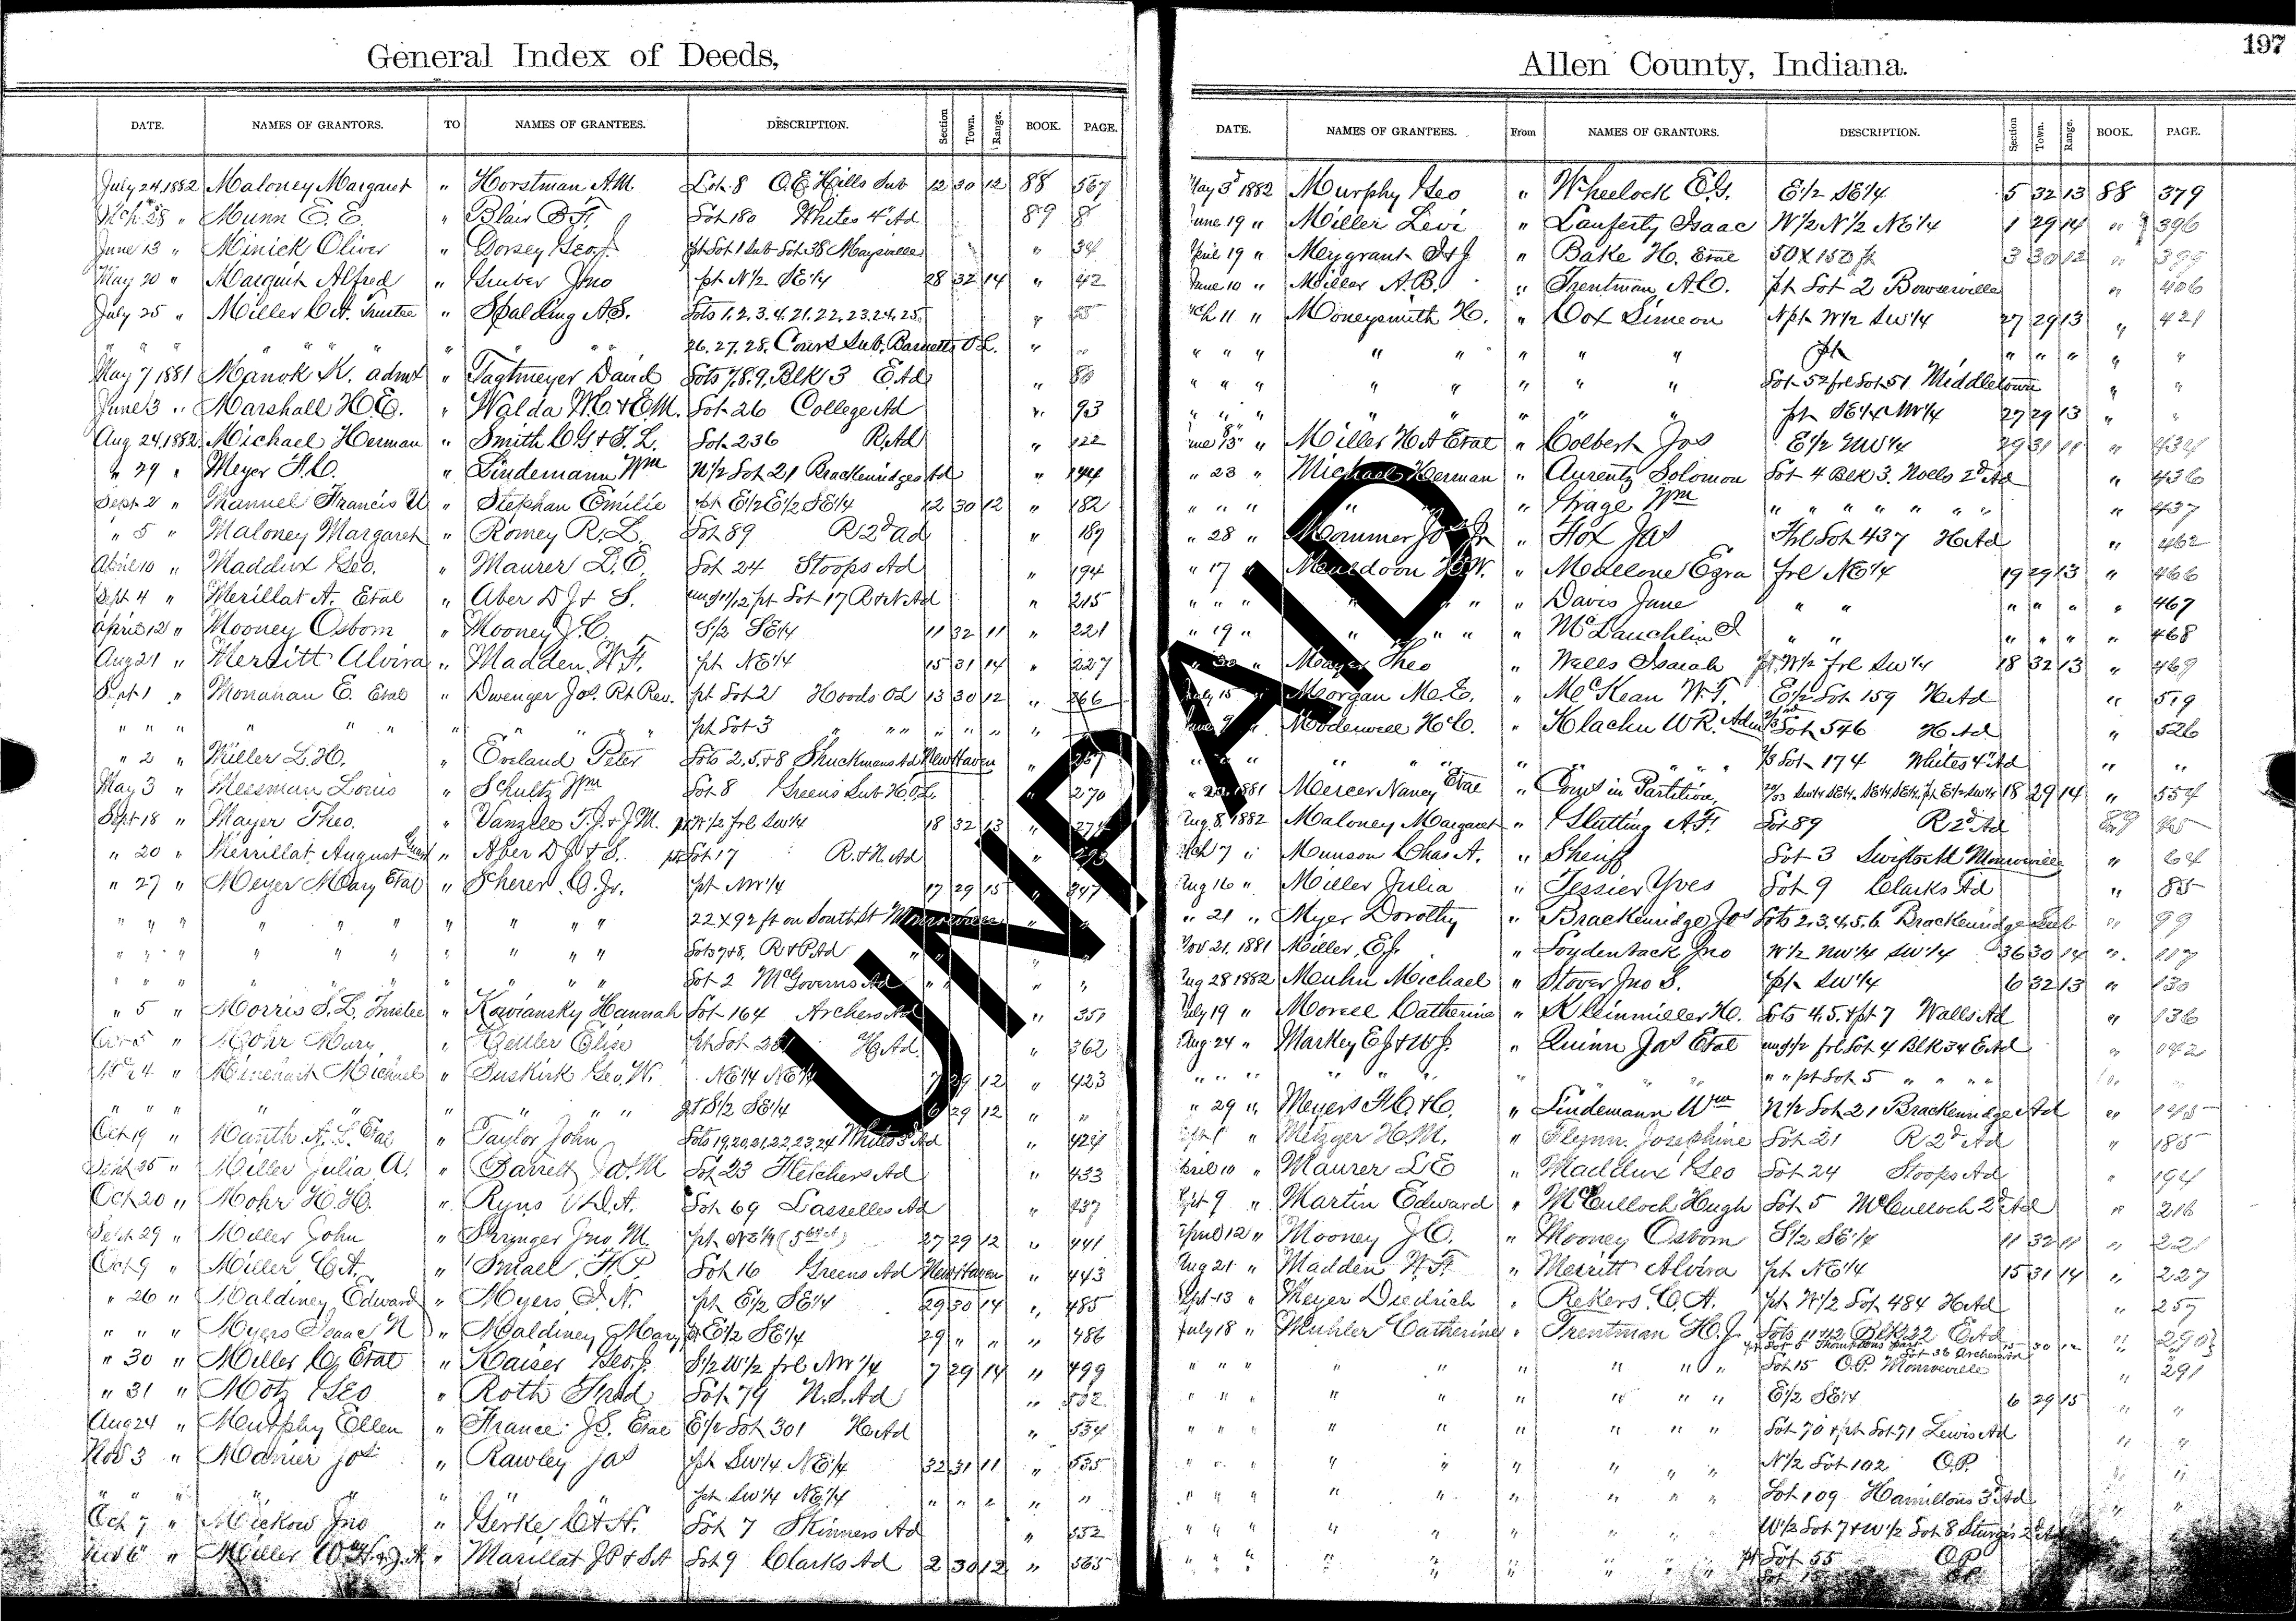 General Index of Deeds,
DATE. NAMES OF GRANTORS. TO NAMES OF GRANTEES. DESCRIPTION. Section Town. Range. BOOK. PAGE.
July 24, 1882 Maloney Margaret " Horstman A.M. Lot 8 O.E. Hills Sub 12 30 12 88 567
Mch 28 " Munn E.E. " Blair B.F. Lot 180 Whites 4th Ad 89 8
June 13 " Minick Oliver " Dorsey Geo. J. pt Lot 1 Sub Lot 38 Maysville " 34
May 20 " Marquit Alfred " Gruber Jno pt N 1/2 SE 1/4 28 32 14 " 42
July 25 " Miller C.A. Trustee " Spalding A.S. Lots 1, 2, 3, 4, 21, 22, 23, 24, 25, " 55
" " " " " " 26. 27. 28. Court Sub. Barnetts O.L. " "
May 7 1881 Manok K. admx " Tagtmeyer David Lots 7, 8, 9, Blk 3 E. Ad " 80
June 3 " Marshall H.E. " Walda W.C. & E.M. Lot 26 College Ad " 93
Aug 24, 1882. Michael Herman " Smith C.G. & F.L. Lot 236 R. Ad " 122
" 29 " Meyer F.C. " Lindemann Wm N 1/2 Lot 21 Brackenridges Ad " 144
Sept 2 " Manuel Francis U " Stephan Emilie pt E 1/2 E 1/2 SE 1/4 12 30 12 " 182
" 5 " Maloney Margaret " Romey R.L. Lot 89 R 2d Ad " 189
April 10 " Maddux Geo. " Maurer L.E. Lot 24 Stoops Ad " 194
Sept 4 " Merillat A. Etal " Aber D.J. & S. und 1/2 pt Lot 17 R & N Ad " 215
April 12 " Mooney Osborn " Mooney J.C. S 1/2 SE 1/4 11 32 11 " 221
Aug 21 " Merritt Alvira " Madden W.F. pt NE 1/4 15 31 14 " 227
Sept 1 " Monahan E. Etal " Dwenger Jos. Rt. Rev. pt Lot 2 Hoods O.L. 13 30 12 " 266
" " " " " " pt Lot 3 " " " " " " "
" 2 " Miller L.H. " Eveland Peter Lots 2, 5, & 8 Shuckmans Ad New Haven " 267
May 3 " Messman Louis " Schultz Wm Lot 8 Greens Sub H.O.L. " 270
Sept 18 " Mayer Theo. " Vanzile T.J. & J.M. pt W 1/2 frl SW 1/4 18 32 13 " 274
" 20 " Merrillat August " Aber D.J. & S. pt Lot 17 R. & N. Ad " 293
" 27 " Meyer Mary Etal " Scherer C. Jr. pt NW 1/4 17 29 15 " 347
" " " " " " " " 22 x 92 ft on South St Monroeville " "
" " " " " " " " Lots 7 & 8, R & P Ad " "
" " " " " " Lot 2 McGoverns Ad " "
" 5 " Morris S.L. Trustee " Kaviansky Hannah Lot 164 Archers Ad " 351
Mohr Mary " Zeller Elise pt Lot 281 H. Ad " 362
24 " Minehart Michael " Buskirk Geo. W. NE 1/4 NE 1/4 7 29 12 " 423
" " " " " " " " S 1/2 SE 1/4 6 29 12 " "
Oct 19 " Manth A.L. Etal " Taylor John Lots 19, 20, 21, 22, 23, 24 Whites 3d Ad " 424
Sept 25 " Miller Julia A. " Barrett Jas. M Lot 23 Fletchers Ad " 433
Oct 20 " Mohr H.H. " Ryus V.D.A. Lot 69 Lasselles Ad " 437
Sept 29 " Miller John " Springer Jno M. pt NE 1/4 27 29 12 " 441
Oct 9 " Miller C.A. " Small F.P. Lot 16 Greens Ad New Haven " 443
" 26 " Maldiney Edward " Myers I.N. pt E 1/2 SE 1/4 29 30 14 " 485
" " " Myers Isaac N " Maldiney Mary pt E 1/2 SE 1/4 29 " " " 486
" 30 " Miller C. Etal " Kaiser Geo. J. S 1/2 W 1/2 frl NW 1/4 7 29 14 " 499
" 31 " Motz Geo " Roth Fred Lot 79 N.S. Ad " 532
Aug 24 " Murphy Ellen " France J.E. Etal E 1/2 Lot 301 H. Ad " 534
Nov 3 " Manier Jos " Rawley Jas pt SW 1/4 NE 1/4 32 31 11 " 535
" " " " " " pt SW 1/4 NE 1/4 " " " " "
Oct 7 " Mickow Jno " Gerke C & A. Lot 7 Skinners Ad " 552
Miller " Marillat J.P. & S.A Lot 9 Clarks Ad 2 30 12 " 565
197
Allen County, Indiana.
DATE. NAMES OF GRANTEES. From NAMES OF GRANTORS. DESCRIPTION. Section Town. Range. BOOK. PAGE.
May 3d 1882 Murphy Geo " Wheelock E.G. E 1/2 SE 1/4 5 32 13 88 379
June 19 " Miller Levi " Lauferty Isaac W 1/2 N 1/2 NE 1/4 1 29 14 " 396
April 19 " Meygrant " Bake H. Etal 50 x 150 ft 3 30 12 " 399
June 10 " Miller A.B. " Trentman A.C. pt Lot 2 Bowserville " 406
Mch 11 " Moneysmith H. " Cox Simeon N pt W 1/2 SW 1/4 27 29 13 " 421
" " " " " " " " pt " " " " "
" " " " " " " " Lot 52 frl Lot 51 Middletown " "
" " " " " " " " pt SE 1/4 NW 1/4 27 29 13 " "
June 13 " Miller H.A. Etal " Colbert Jos E 1/2 NW 1/4 29 31 11 " 434
" 23 " Michael Herman " Aurentz Solomon Lot 4 Blk 3. Noells 2d Ad " 436
" " " " " Hrage Wm " " " " " " " " 437
" 28 " Mommer Jos Jr. " Fox Jas Frl Lot 437 H. Ad " 462
" 17 " Muldoon H.W. " Mallone Ezra frl NE 1/4 19 29 13 " 466
" " " " " " " Davis Jane " " " " " " 467
" 19 " " " " " McLauchlin I " " " " " " 468
" 30 " Mayer Theo " Wells Isaiah pt W 1/2 frl SW 1/4 18 32 13 " 469
July 15 " Morgan M.E. " McKean W.T. E 1/2 Lot 159 H. Ad " 519
June 9 " Modewell H.C. " Klachn W.R. Adm 2/3 Lot 546 H. Ad " 526
" " " " " " " " 1/3 Lot 174 Whites 4th Ad " "
1881 Mercer Nancy Etal " Coms in Partition, 18 29 14 " 554
Aug. 8. 1882 Maloney Margaret " Slutting A.F. Lot 89 R 2d Ad 89 45
Mch 7 " Munson Chas. A. " Sheriff Lot 3 Monroeville " 64
Aug 16 " Miller Julia " Tessier Yves Lot 9 Clarks Ad " 85
" 21 " Myer Dorothy " Brackenridge Jos Lots 2, 3, 4, 5, 6. Brackenridge Sub " 99
Nov 21. 1881 Miller, E.J. " Loudenback Jno W 1/2 NW 1/4 SW 1/4 36 30 14 " 117
Aug 28 1882 Menhn Michael " Stover Jno S. pt SW 1/4 6 32 13 " 130
July 19 " Morell Catherine " Kleinmiller H. Lots 4, 5, & pt 7 Walls Ad " 136
Aug 24 " Markey E.J. & W.J. " Quinn Jas Etal und 1/2 frl Lot 4 Blk 34 E. Ad " 142
" " " " " " " " " pt Lot 5 " " " "
" 29 " Meyers F.C. & C. " Lindemann Wm N 1/2 Lot 21 Brackenridge Ad " 145
Metzger H.M. " Flynn Josephine Lot 21 R 2d Ad " 185
April 10 " Maurer L E " Maddux Geo Lot 24 Stoops Ad " 194
Sept 9 " Martin Edward " McCulloch Hugh Lot 5 McCulloch 2d Ad " 216
April 12 " Mooney J.C. " Mooney Osborn S 1/2 SE 1/4 11 32 11 " 221
Aug 21 " Madden W.F. " Merritt Alvira pt NE 1/4 15 31 14 " 227
Sept 13 " Meyer Diedrich " Rekers C.A. pt W 1/2 Lot 484 H. Ad " 257
July 18 " Muhler Catherine " Trentman H.J. Lots 11 & 12 Blk 22 E. Ad " 290
" " " " " " " " Lot 15 O.P. Monroeville " 291
" " " " " " " " E 1/2 SE 1/4 6 29 15 " "
" " " " " " " " Lot 70 & pt Lot 71 Lewis Ad " "
" " " " " " " " N 1/2 Lot 102 O.P. " "
" " " " " " " " Lot 109 Hamiltons 3d Ad " "
" " " " " " " " W 1/2 Lot 7 & W 1/2 Lot 8 Sturgis 2d Ad
" " " " " " " " pt Lot 55 O.P.
UNPAID